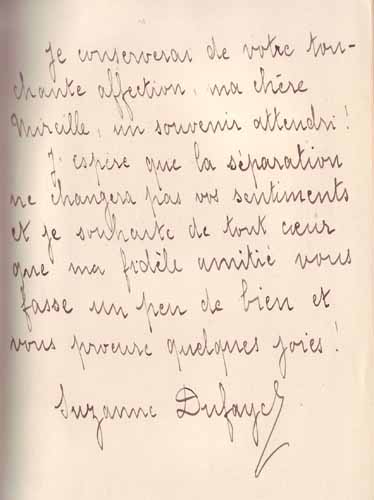 Je conserverai de votre tou-
chante affection, ma chère
Mireille, un souvenir attendri!
J'espère que la séparation
ne changera pas vos sentiments
et je souhaite de tout cœur
que ma fidèle amitié vous
fasse un peu de bien et
vous procure quelques joies!
Suzanne Dufayel